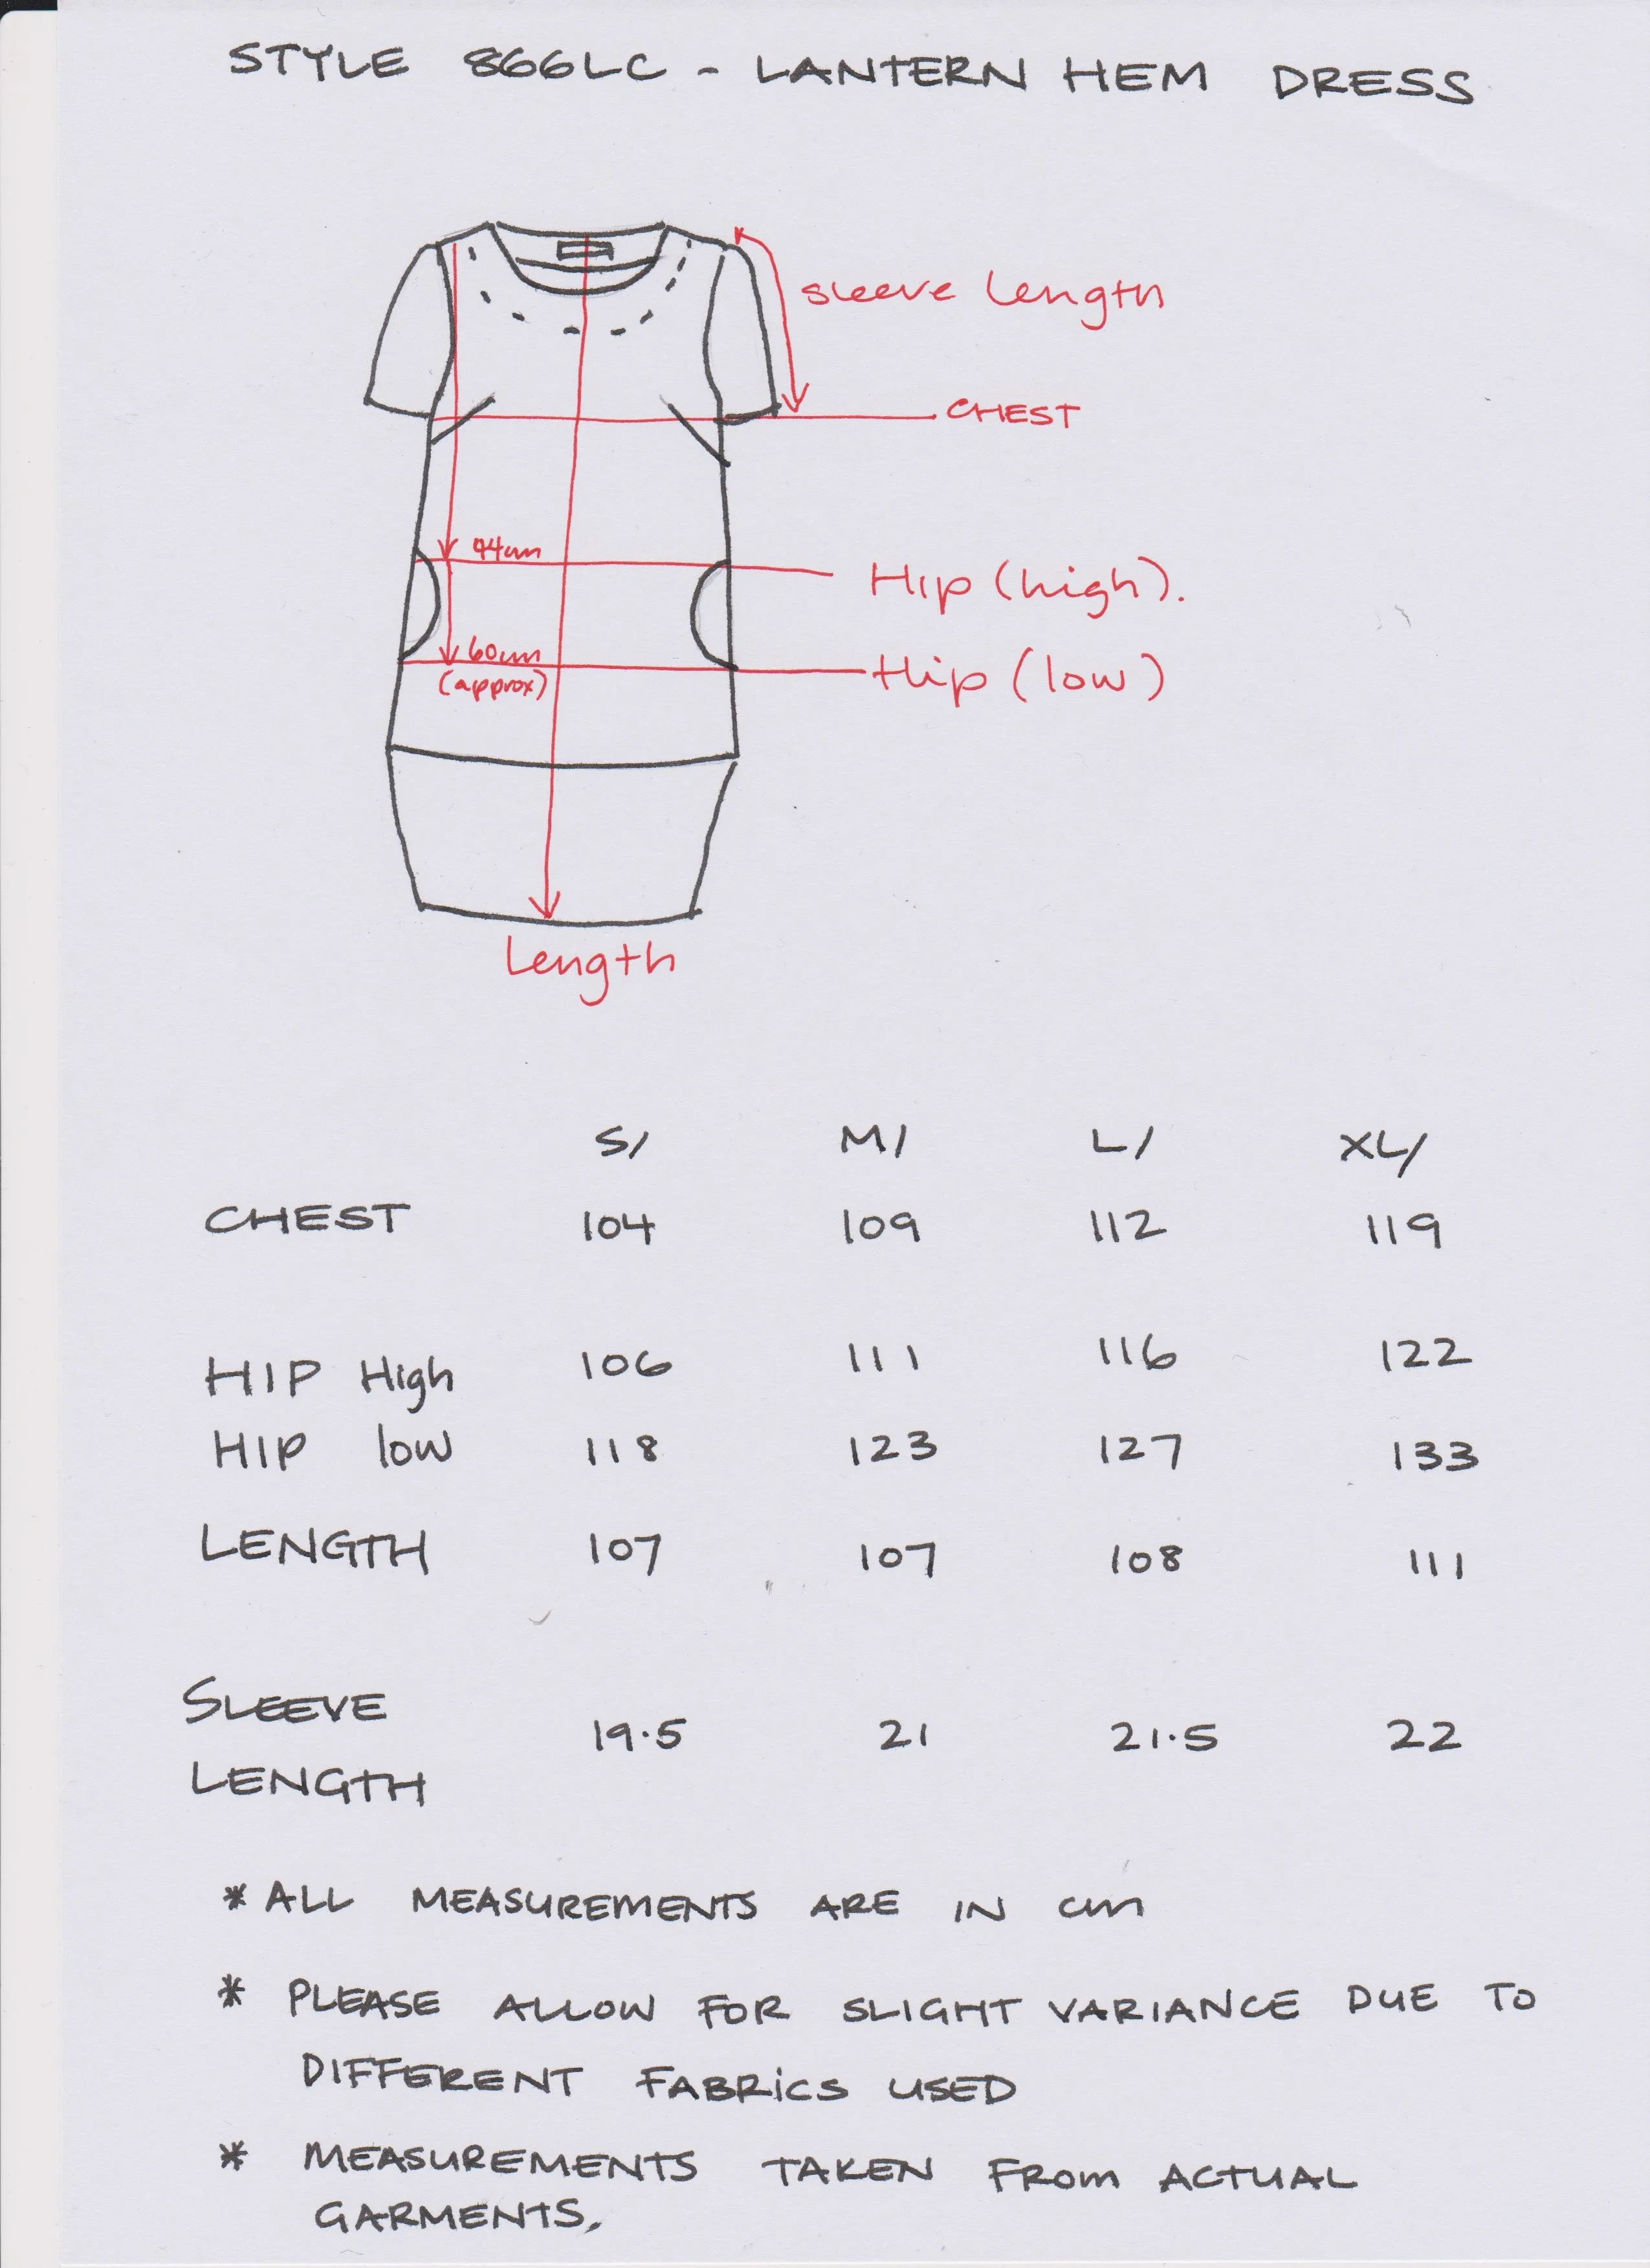 STYLE 866LC - LANTERN HEM DRESS
sleeve length
CHEST
44cm
Hip (high).
60cm
(approx)
Hip (low)
Length
S/ M/ L/ XL/
CHEST 104 109 112 119
HIP High 106 111 116 122
HIP low 118 123 127 133
LENGTH 107 107 108 111
SLEEVE
LENGTH 19.5 21 21.5 22
* ALL MEASUREMENTS ARE IN cm
* PLEASE ALLOW FOR SLIGHT VARIANCE DUE TO
DIFFERENT FABRICS USED
* MEASUREMENTS TAKEN FROM ACTUAL
GARMENTS.